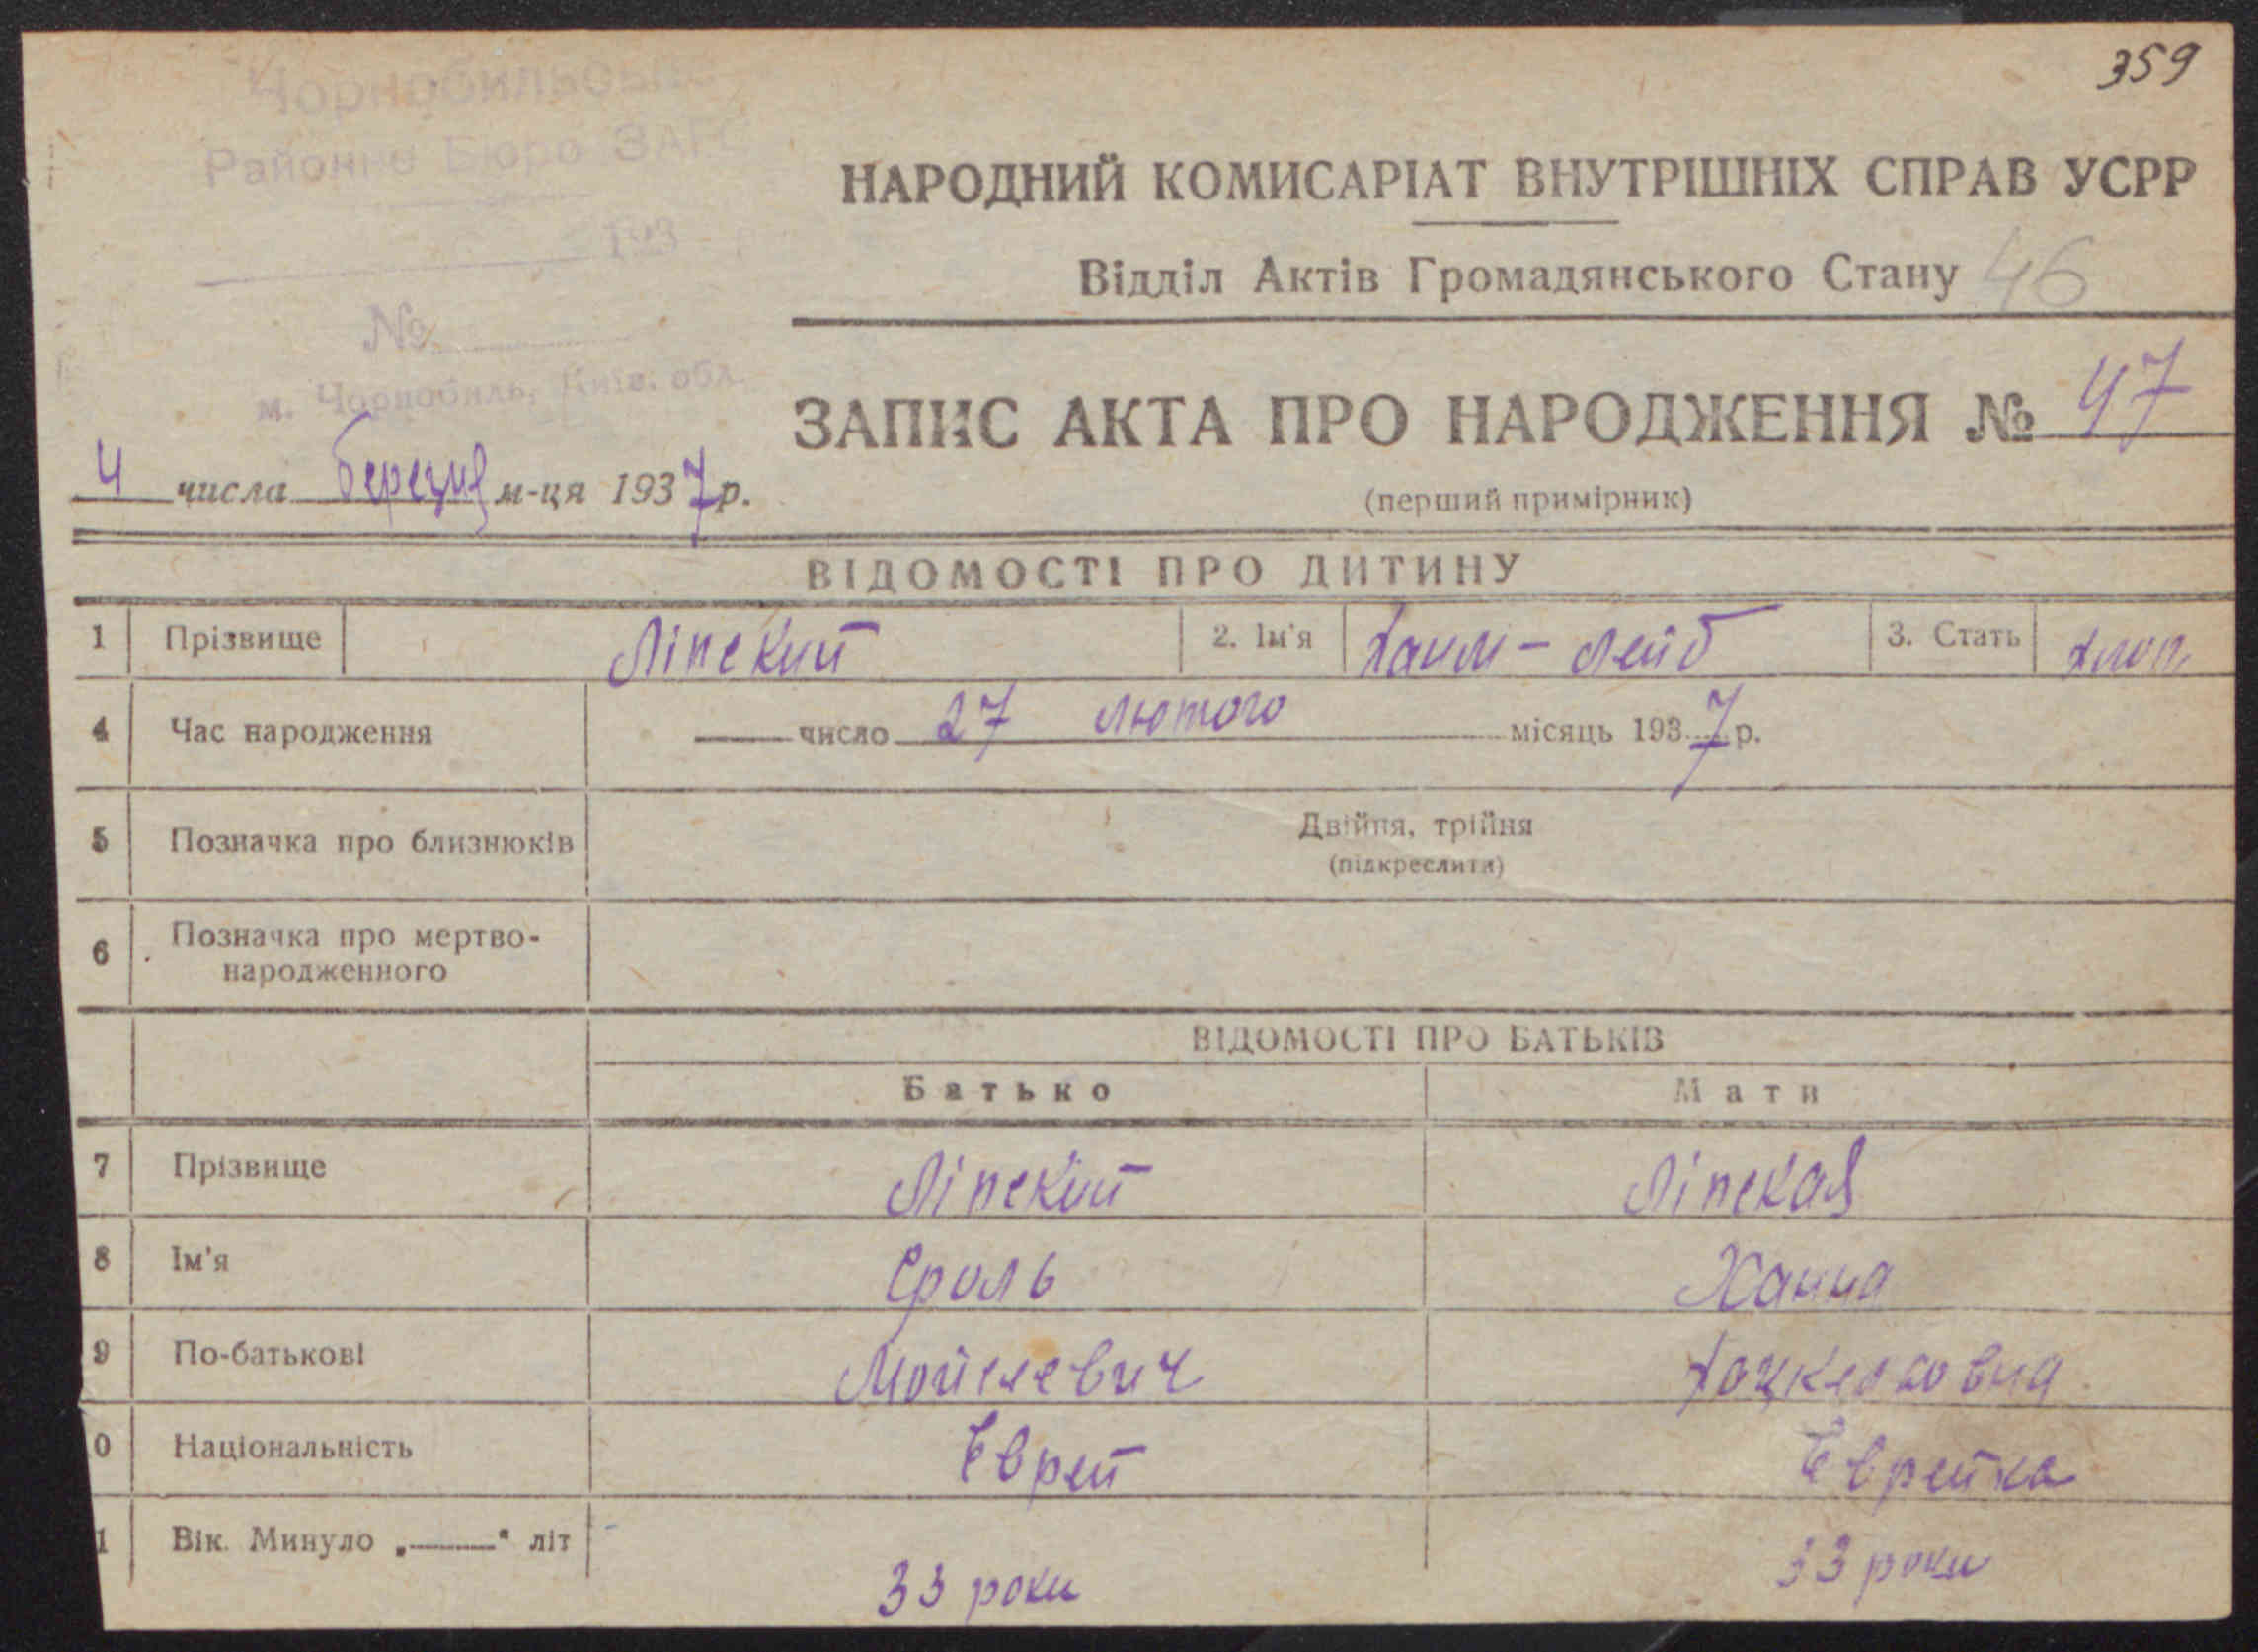 359
Чорнобильське
Районне Бюро ЗАГС
193
№
м. Чорнобиль, Київ. обл.
НАРОДНИЙ КОМИСАРІАТ ВНУТРІШНІХ СПРАВ УСРР
Відділ Актів Громадянського Стану 46
ЗАПИС АКТА ПРО НАРОДЖЕННЯ № 47
(перший примірник)
4 числа березня м-ця 1937 р.
ВІДОМОСТІ ПРО ДИТИНУ
1 Прізвище Ліпский 2. Ім'я Хаим - Лейб 3. Стать хлоп.
4 Час народження число 27 лютого місяць 1937 р.
5 Позначка про близнюків Двійня, трійня
(підкреслити)
6 Позначка про мертво-
народженного
ВІДОМОСТІ ПРО БАТЬКІВ
Батько Мати
7 Прізвище Ліпский Ліпская
8 Ім'я Сроль Ханна
9 По-батькові Мойсеевич Хацкелевна
0 Національність Еврей Еврейка
1 Вік. Минуло „——" літ 33 роки 33 роки